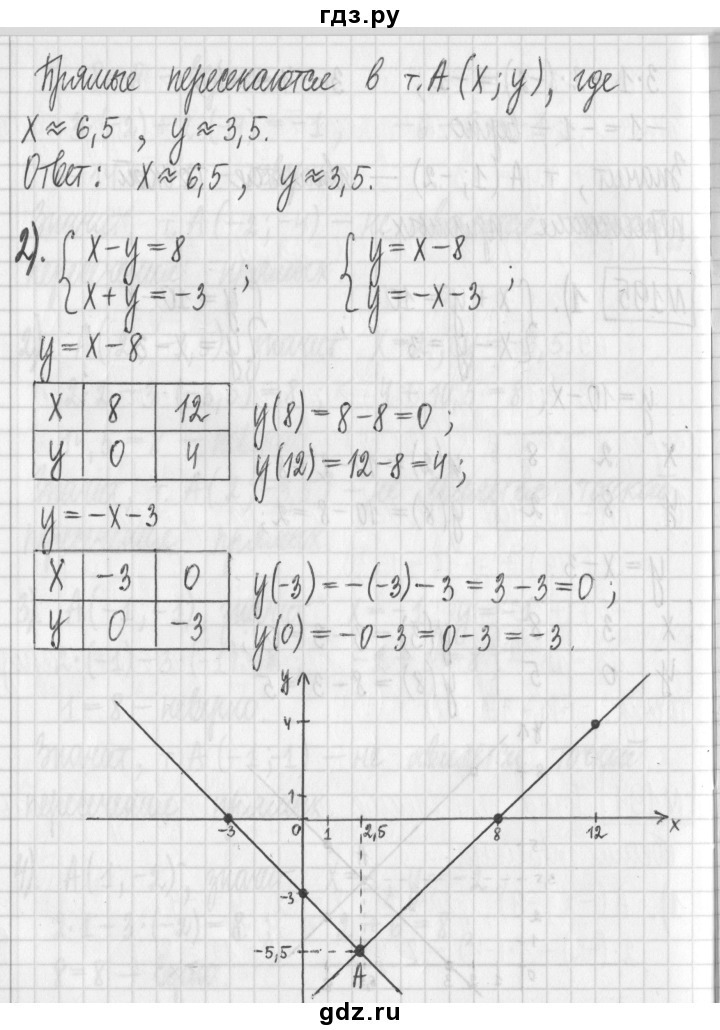 гдз.ру
Прямые пересекаются в т. A (x; y), где
x ≈ 6,5, y ≈ 3,5.
Ответ: x ≈ 6,5, y ≈ 3,5.
2). { x − y = 8 { y = x − 8
x + y = −3 ; y = −x − 3 ;
y = x − 8
x 8 12 y(8) = 8 − 8 = 0 ;
y 0 4 y(12) = 12 − 8 = 4 ;
y = −x − 3
x −3 0 y(−3) = −(−3) − 3 = 3 − 3 = 0 ;
y 0 −3 y(0) = −0 − 3 = 0 − 3 = −3.
y
4
1
−3 0 1 2,5 8 12 x
−3
−5,5
A
gdz.ru